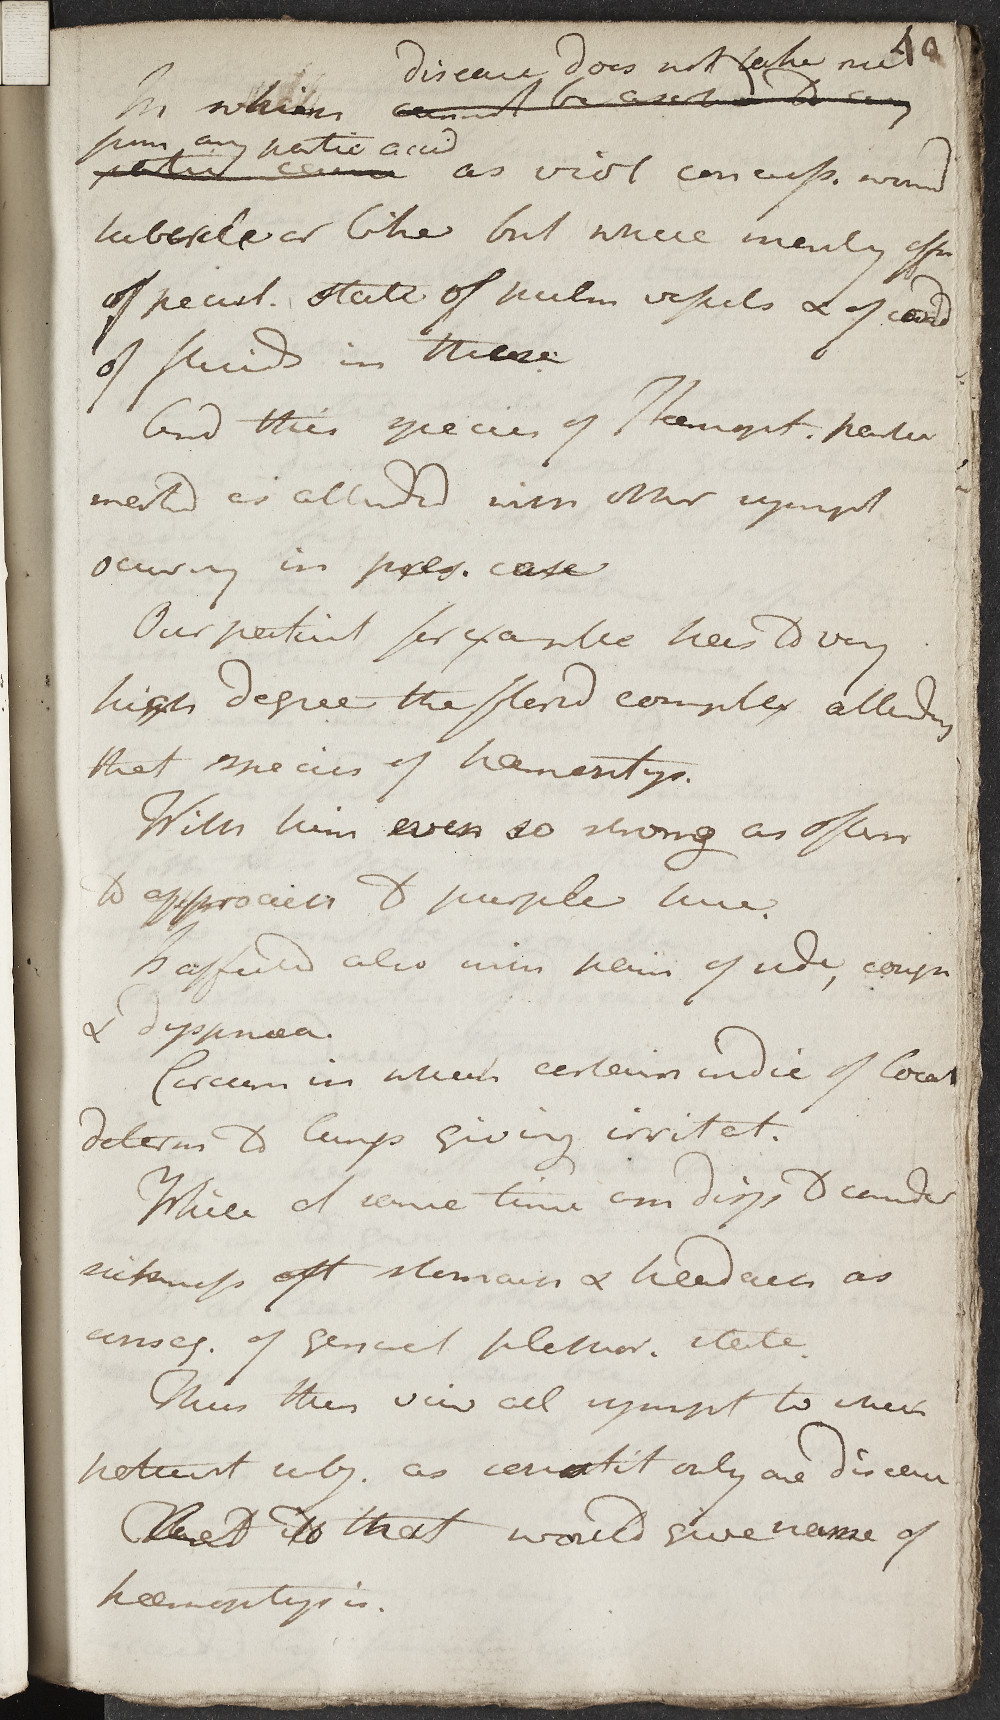 40
disease does not take rise
In which cannot be ascribed to any
from any partic accid
partic cause as viol concuss. wound
tubercle or like but where merely effec
of pecul. state of pulm vessels & of cond
of fluids in these
And this species of Haemopt. partic
meritd is attended with other sympt
occuring in pres. case
Our patient for example has to very
high degree the florid complex attending
that species of hemoptys.
With him even so strong as often
to approach to purple hue.
Is affected also with pain of side, cough
& dyspnoea.
Circum in which certain indic of local
determ to lungs giving irritat.
While at same time am disps to consider
sickness at stomach & headach as
conseq. of general plethor. state.
Thus then view all sympt to which
patient subj. as constit only one disease
And to that would give name of
haemoptysis.